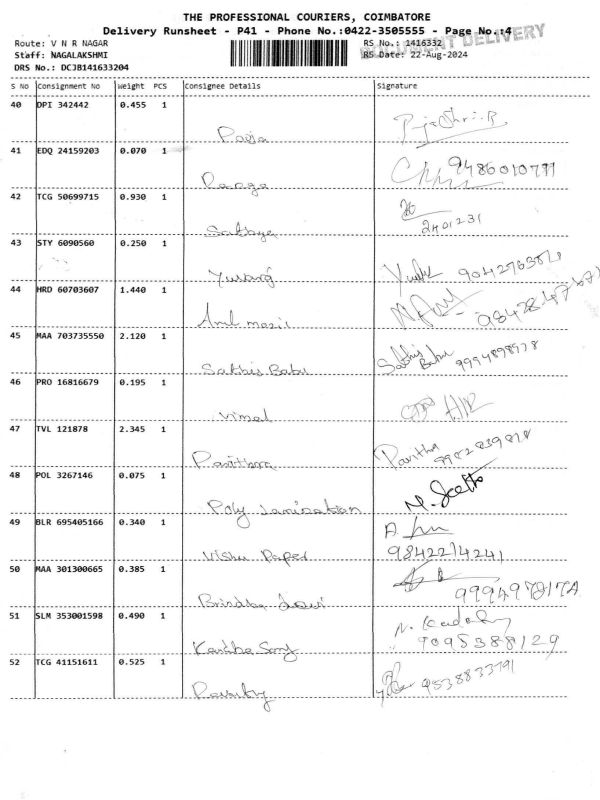 THE PROFESSIONAL COURIERS, COIMBATORE
Delivery Runsheet - P41 - Phone No.:0422-3505555 - Page No.:4
DOCUMENT DELIVERY
Route: V N R NAGAR
RS No.: 1416332
Staff: NAGALAKSHMI
RS Date: 22-Aug-2024
DRS No.: DCJB141633204
S No Consignment No Weight PCS Consignee Details Signature
40 DPI 342442 0.455 1
Pooja
41 EDQ 24159203 0.070 1
9486010777
42 TCG 50699715 0.930 1
Sathya
43 STY 6090560 0.250 1
Yuvaraj
44 HRD 60703607 1.440 1
45 MAA 703735550 2.120 1
Sathis Babu
Sathis Babu 9994898978
46 PRO 16816679 0.195 1
Vimal
47 TVL 121878 2.345 1
Pavithra
Pavitha
48 POL 3267146 0.075 1
Poly
49 BLR 695405166 0.340 1
Vishu Paper
9842214241
50 MAA 301300665 0.385 1
Brindha Devi
51 SLM 353001598 0.490 1
9095388129
52 TCG 41151611 0.525 1
9538833791